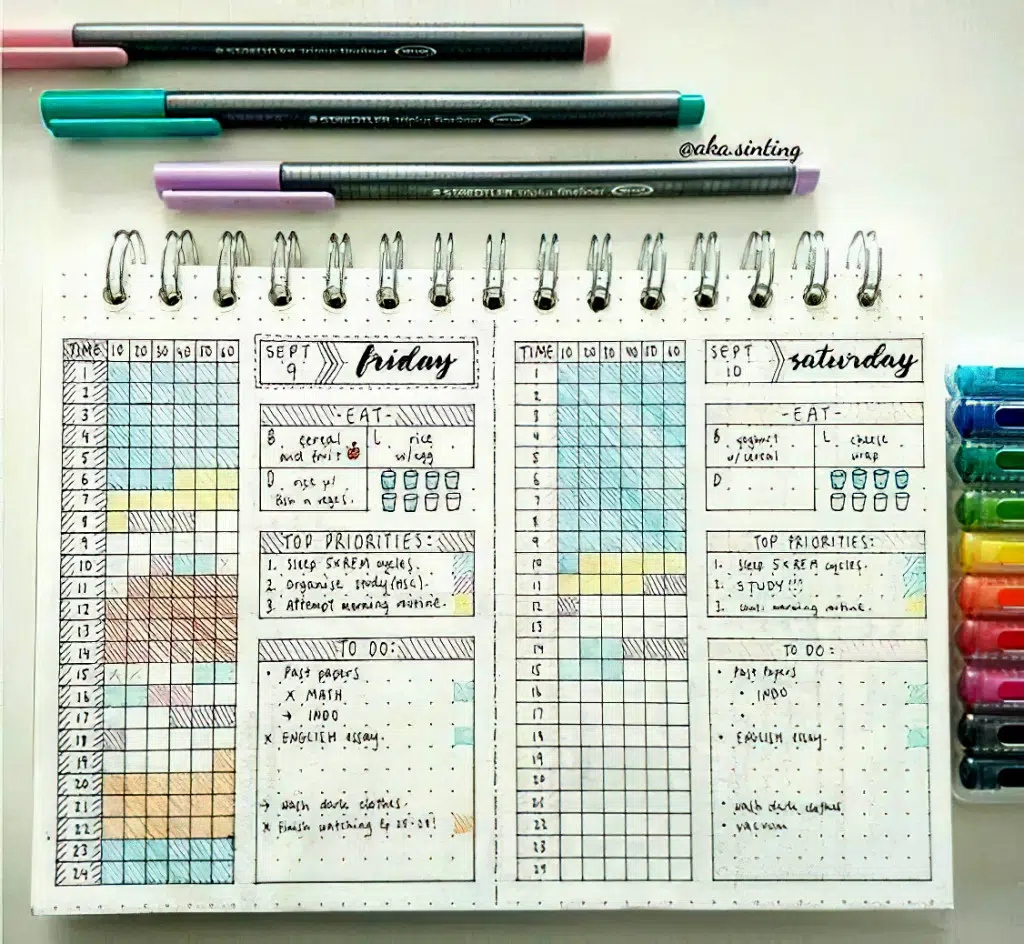 STAEDTLER triplus fineliner
STAEDTLER triplus fineliner
@aka.sinting
STAEDTLER triplus fineliner
TIME 10 20 30 40 50 60
1
2
3
4
5
6
7
8
9
10
11
12
13
14
15
16
17
18
19
20
21
22
23
24
SEPT
9
friday
-EAT-
B. cereal
and fruit
L. rice
w/egg
D. rice w/
fish n veges.
TOP PRIORITIES:
1. Sleep 5xREM cycles.
2. Organise study (HSC).
3. Attempt morning routine.
TO DO:
• Past papers
x MATH
→ INDO
x ENGLISH essay.
→ wash dark clothes.
x Finish watching Ep 25-28!
TIME 10 20 30 40 50 60
1
2
3
4
5
6
7
8
9
10
11
12
13
14
15
16
17
18
19
20
21
22
23
SEPT
10
saturday
-EAT-
B. yoghurt
w/cereal
L. cheese
wrap
D
TOP PRIORITIES:
1. Sleep 5xREM cycles.
2. STUDY!!!
3. morning routine.
TO DO:
• Past Papers
• INDO
•
• ENGLISH essay.
• wash dark clothes
• vacuum